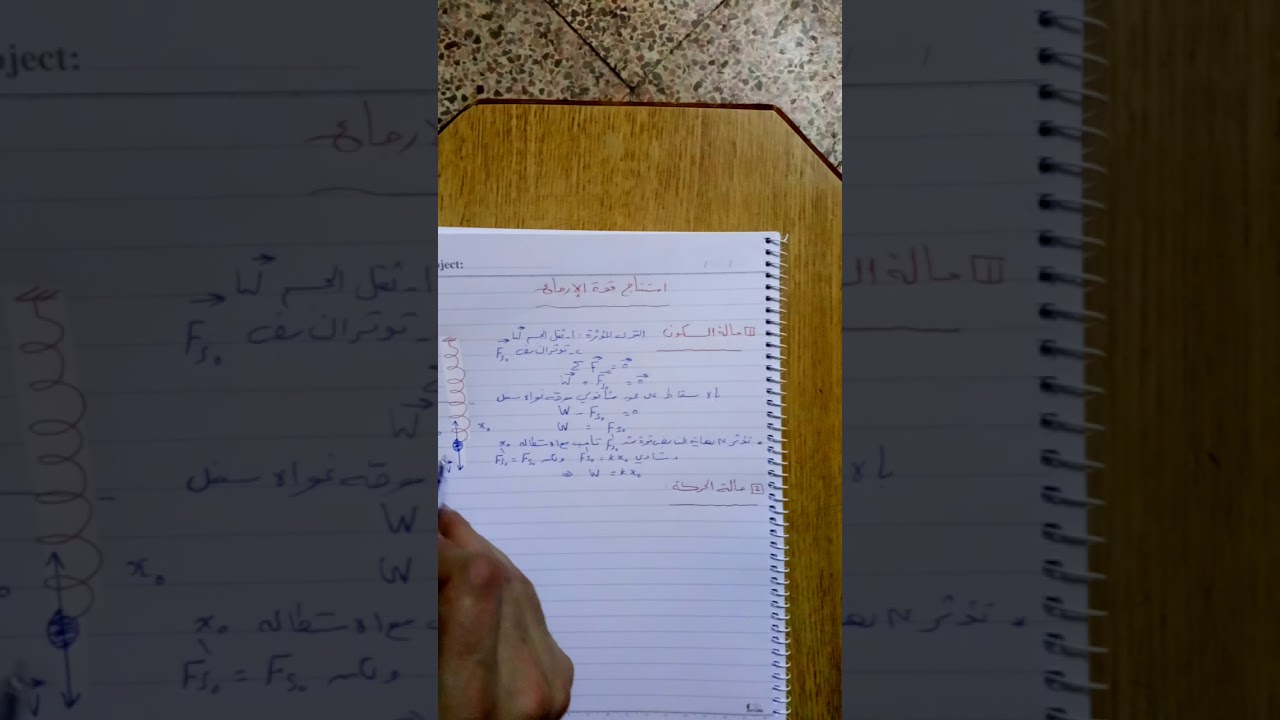 bject:
استنتاج قوة الإرجاع
1 حالة السكون القوى المؤثرة: 1- ثقل الجسم W
2- توتر النابض Fs₀
Σ F = 0
W + Fs₀ = 0
بالإسقاط على محور شاقولي موجه نحو الأسفل
W - Fs₀ = 0
W = Fs₀
x₀
• تؤثر على نهاية النابض قوة شد F's₀ تناسب مع الاستطالة x₀
وتساوي F's₀ = kx₀ ولكن F's₀ = Fs₀
⇒ W = kx₀
2 حالة الحركة: